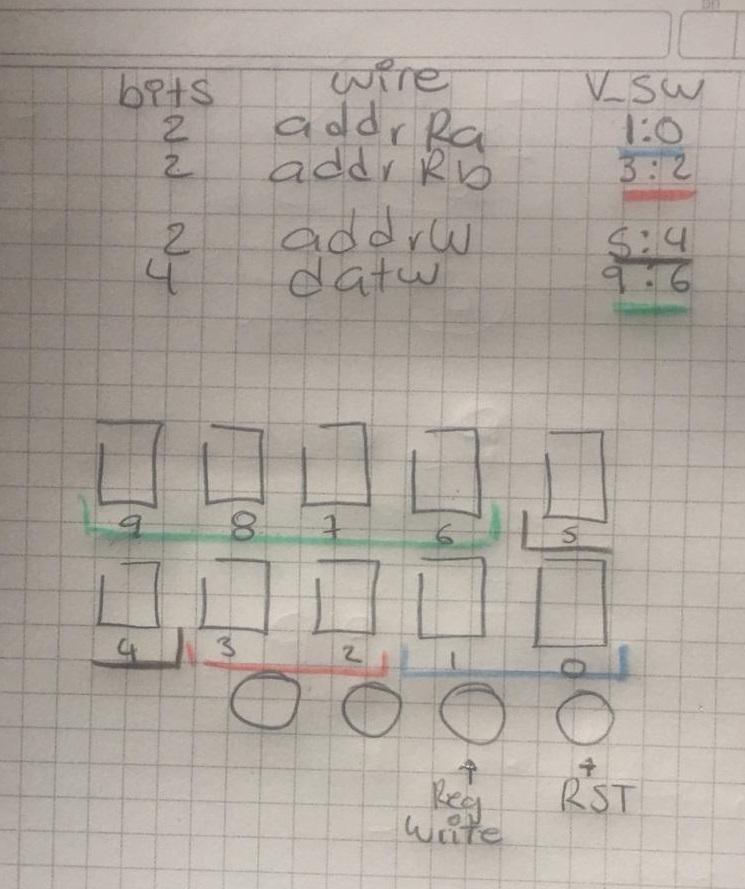 bits wire V_SW
2 addr Ra 1:0
2 addr Rb 3:2
2 addrW 5:4
4 datw 9:6
9 8 7 6 5
4 3 2 1 0
Reg RST
Write